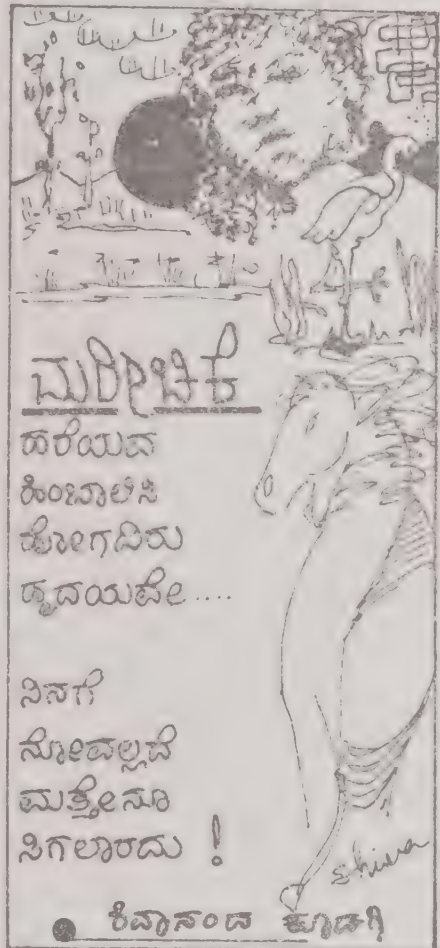 ಮರೀಚಿಕೆ
ಹರೆಯವ
ಹಿಂಬಾಲಿಸಿ
ಹೋಗದಿರು
ಹೃದಯವೇ....
ನಿನಗೆ
ನೋವಲ್ಲದೆ
ಮತ್ತೇನೂ
ಸಿಗಲಾರದು !
shiva
● ಶಿವಾನಂದ ಕೂಡಗಿ